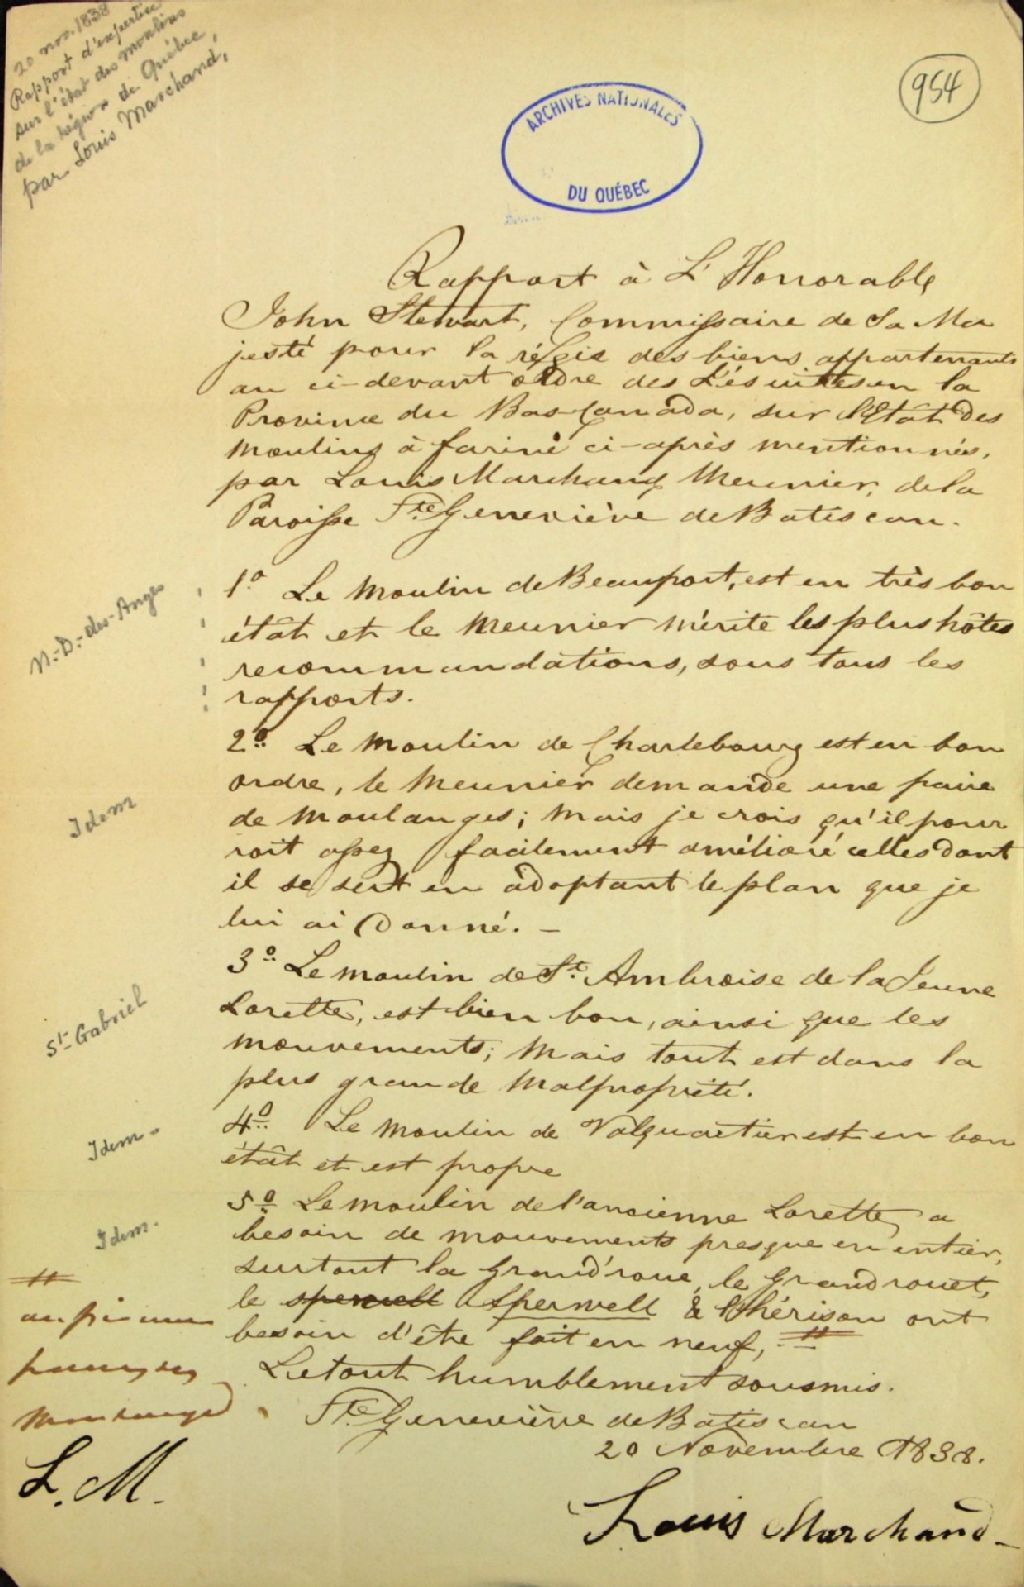 20 nov. 1838
Rapport d'expertise
sur l'état des moulins
de la région de Québec,
par Louis Marchand,
954
ARCHIVES NATIONALES
DU QUÉBEC
Rapport à L'Honorable
John Stewart, Commissaire de Sa Ma
jesté pour la régie des biens appartenants
au ci-devant ordre des Jésuittes en la
Province du Bas-Canada, sur l'Etât des
moulins à farine ci-après mentionnés,
par Louis Marchand Meunier, de la
Paroisse Ste Geneviève de Batiscan.
N.-D.-des-Anges
1º Le Moulin de Beauport, est en très bon
étât et le Meunier mérite les plus hôtes
recommandations, sous tous les
rapports.
2º Le Moulin de Charlebourg est en bon
Idem
ordre, le Meunier demande une paire
de Moulanges; Mais je crois qu'il pour
roit assez facilement amélioré celles dont
il se sert en adoptant le plan que je
lui ai Donné. -
3º Le moulin de St. Ambroise de la Jeune
St-Gabriel
Lorette, est bien bon, ainsi que les
mouvements; Mais tout est dans la
plus grande Malpropreté.
Idem -
4º Le Moulin de Valquartier est en bon
étât et est propre
5º Le moulin de l'ancienne Lorette, a
Idem.
besoin de mouvements presque en entier,
surtout la Grand'roue, le Grand rouet,
le spervell Spervell & l'hérison ont
besoin d'être fait en neuf, #
#
L. M.
Le tout humblement soumis.
Ste Geneviève de Batiscan
20 Novembre 1838.
Louis Marchand